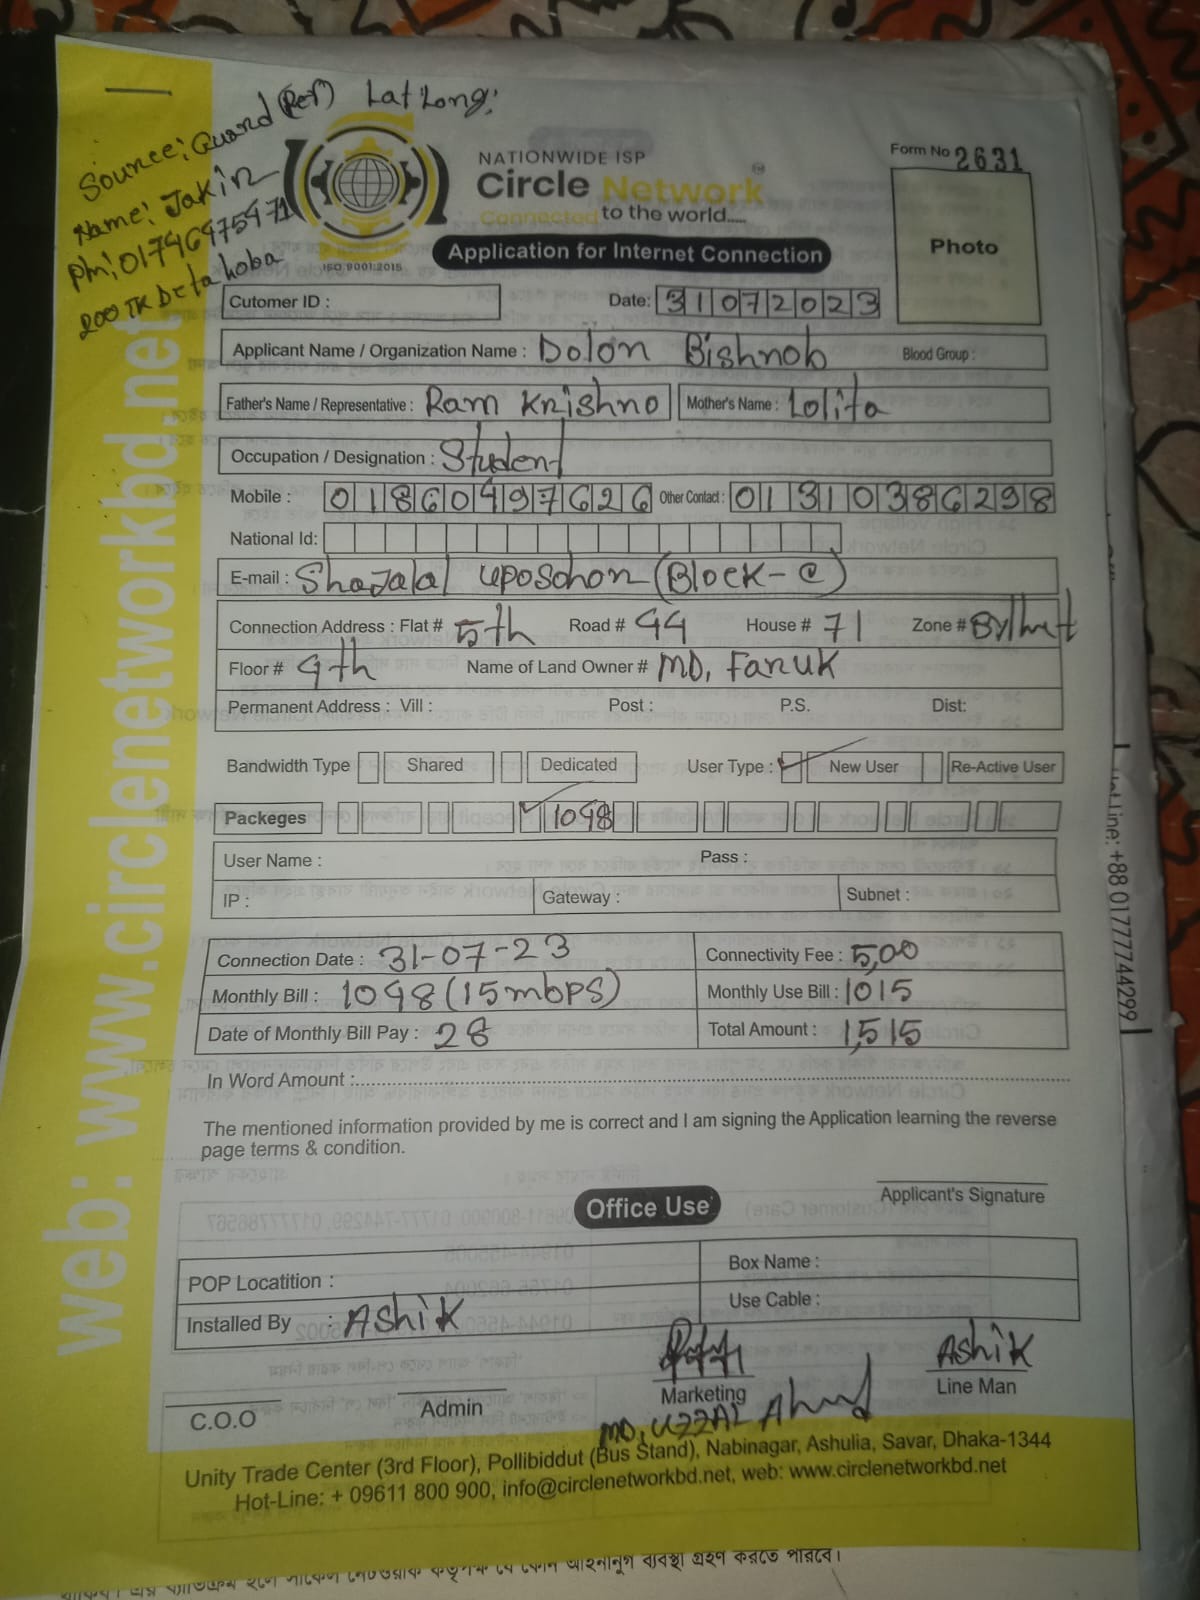 Source: Guard (Ref) Lat Long:
Name: Jakir
Ph: 01796975971
200 TK Beta hoba
NATIONWIDE ISP
Circle Network
Connected to the world.....
ISO 9001:2015
Application for Internet Connection
Form No 2631
Photo
Cutomer ID : Date: 31072023
Applicant Name / Organization Name : Dolon Bishnob Blood Group :
Father's Name / Representative : Ram Krishno Mother's Name : Lolita
Occupation / Designation : Student
Mobile : 01860497626 Other Contact : 01310386298
National Id:
E-mail : Shajalal uposohon (Block-C)
Connection Address : Flat # 5th Road # 44 House # 71 Zone #
Floor # 4th Name of Land Owner # MD, Faruk
Permanent Address : Vill : Post : P.S. Dist:
Bandwidth Type Shared Dedicated User Type : New User Re-Active User
Packeges 1048
User Name : Pass :
IP : Gateway : Subnet :
Connection Date : 31-07-23 Connectivity Fee : 5,00
Monthly Bill : 1048 (15mbps) Monthly Use Bill : 1015
Date of Monthly Bill Pay : 28 Total Amount : 1,515
In Word Amount :
The mentioned information provided by me is correct and I am signing the Application learning the reverse
page terms & condition.
Applicant's Signature
Office Use
POP Locatition : Box Name :
Installed By : Ashik Use Cable :
Ashik
C.O.O Admin Marketing Line Man
MD, UZZAL Ahmd
Unity Trade Center (3rd Floor), Pollibiddut (Bus Stand), Nabinagar, Ashulia, Savar, Dhaka-1344
Hot-Line: + 09611 800 900, info@circlenetworkbd.net, web: www.circlenetworkbd.net
web: www.circlenetworkbd.net
Hot Line: +88 01777744299
যে কোন আইনানুগ ব্যবস্থা গ্রহণ করতে পারবে।